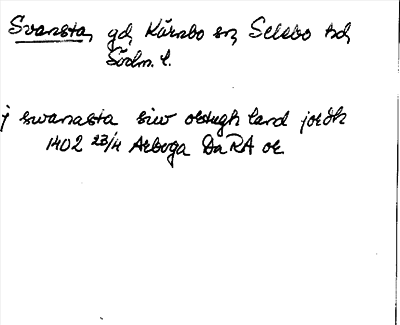 Svansta, gd, Kärnbo sn, Selebo hd,
Södm. l.
j swanasta siw obtugh land jordh
1402 23/4 Arboga DaRA or